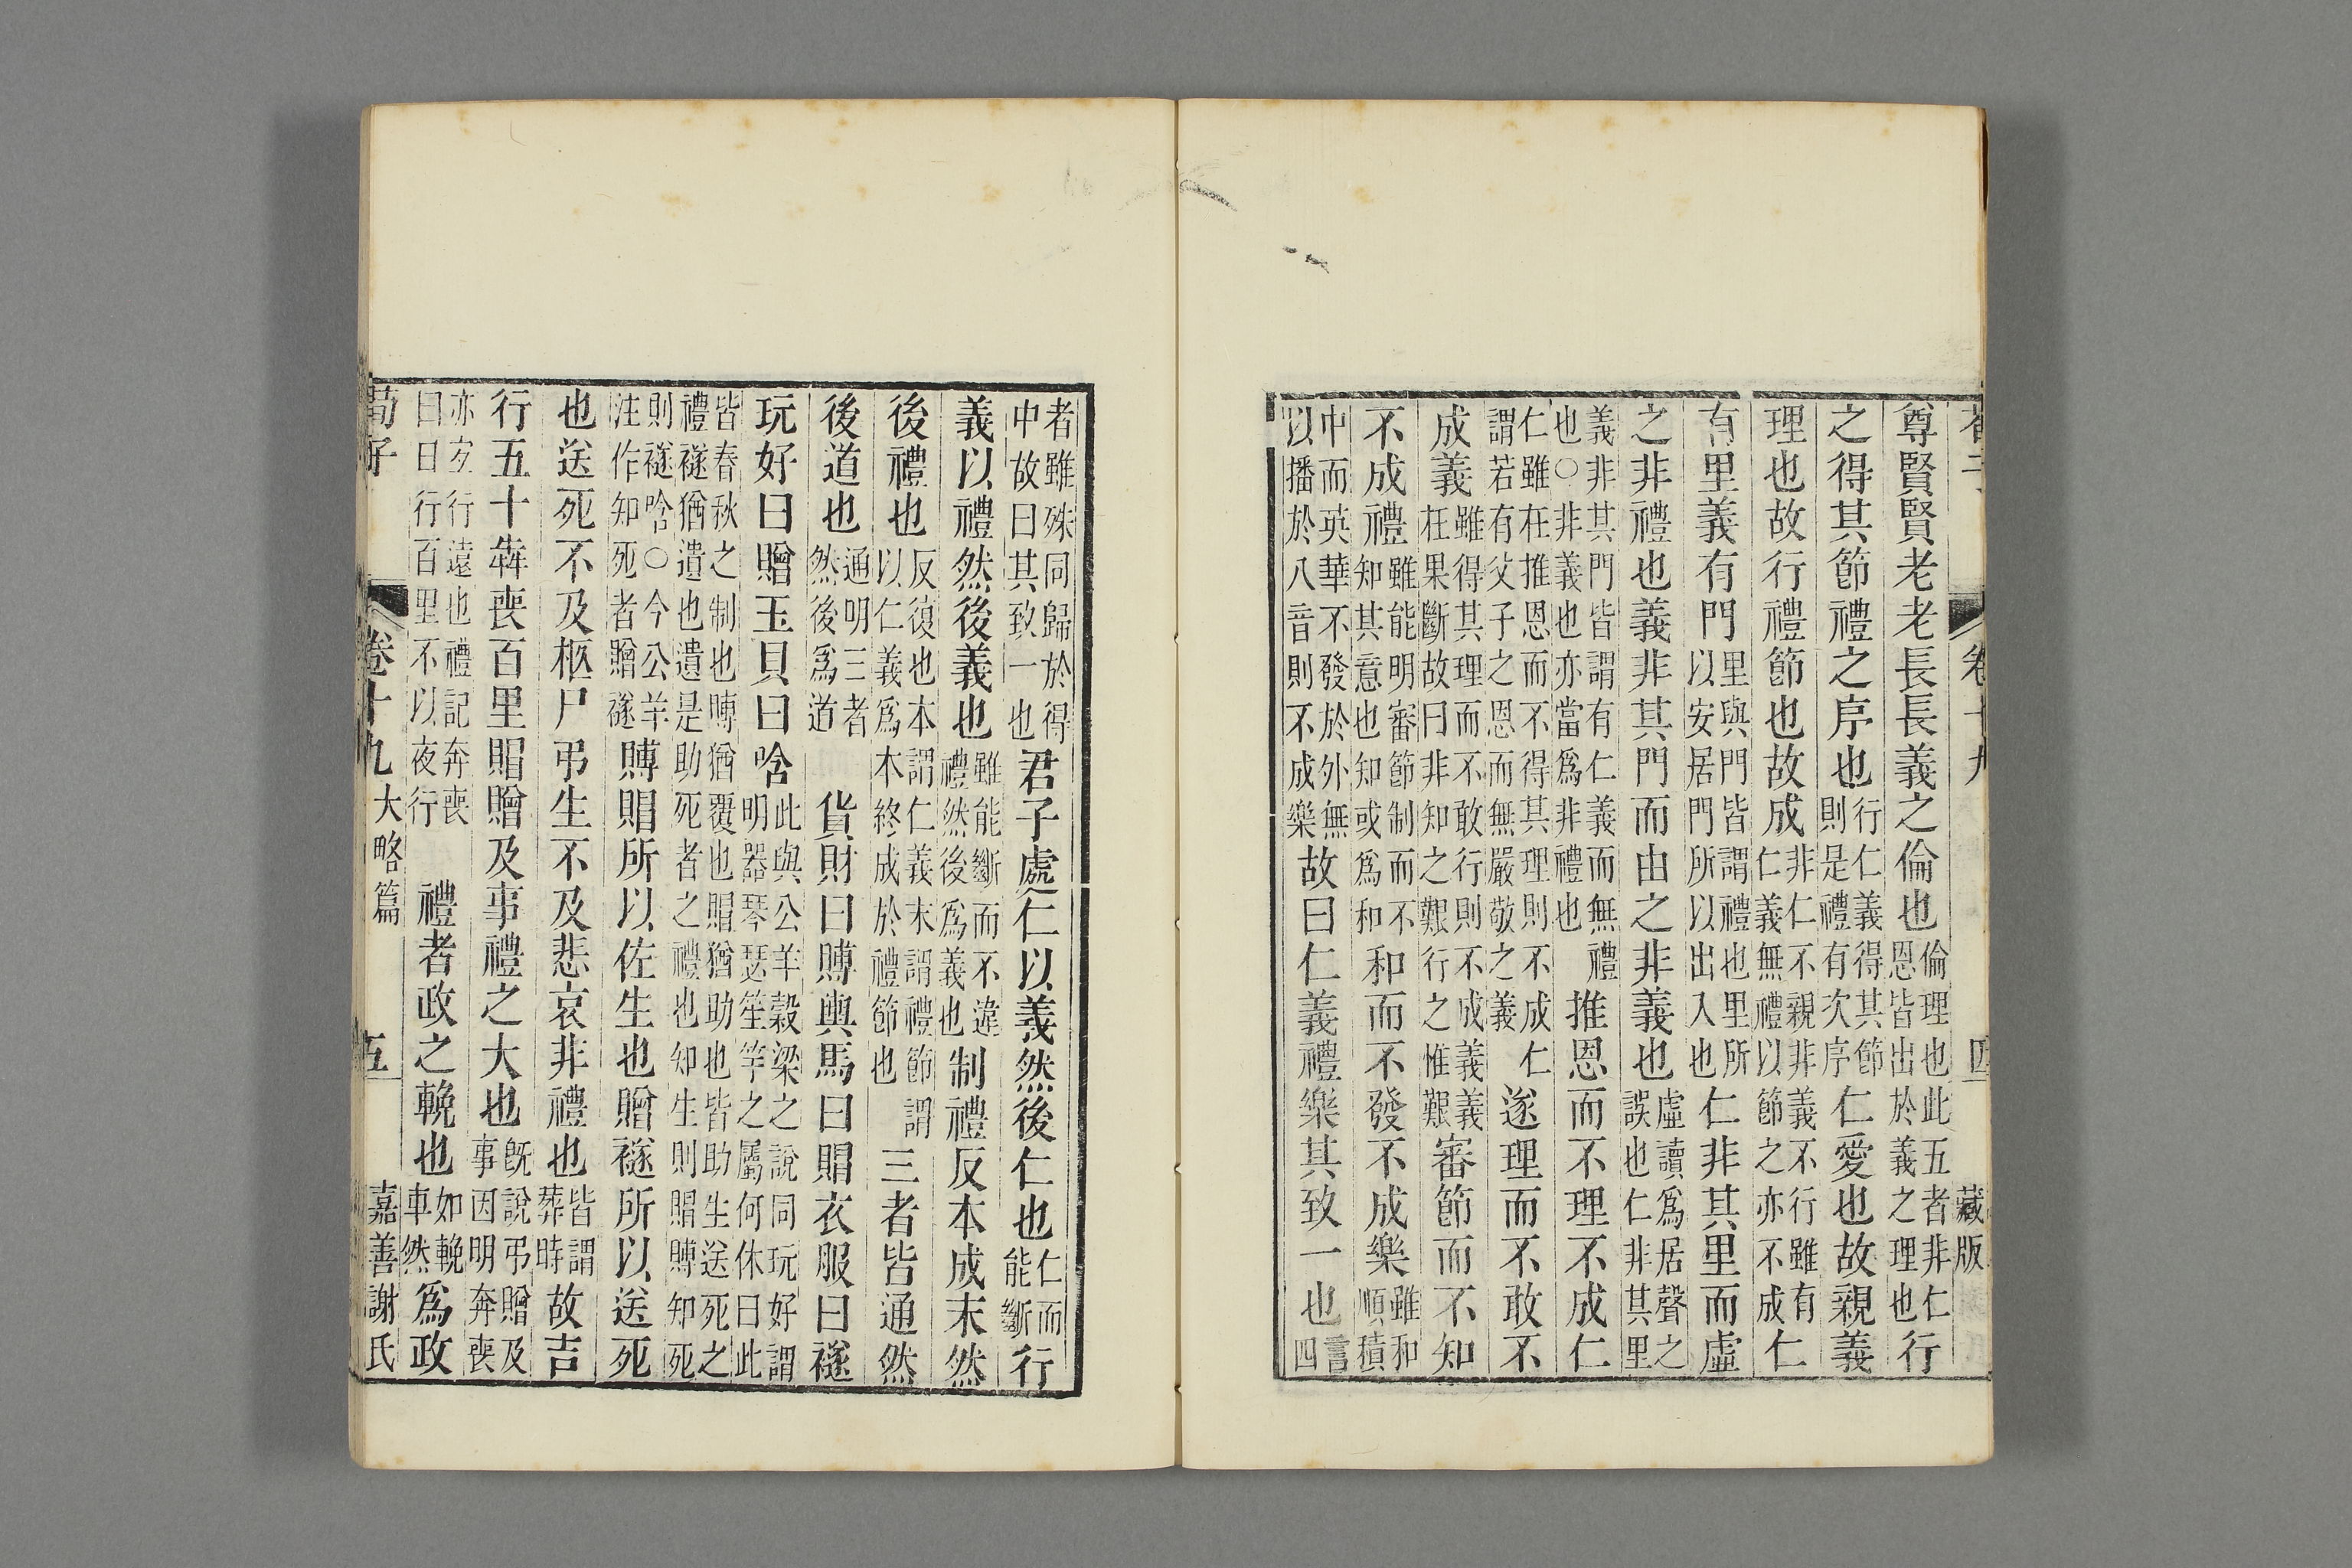 荀子 卷十九 四 藏版
尊賢賢老老長長義之倫也倫理也此五者非仁恩皆出於義之理也行
之得其節禮之序也行仁義得其節則是禮有次序仁愛也故親義
理也故行禮節也故成非仁不親非義不行雖有仁義無禮以節之亦不成仁
有里義有門里與門皆謂禮也里所以安居門所以出入也仁非其里而虛
之非禮也義非其門而由之非義也虛讀爲居聲之誤也仁非其里
義非其門皆謂有仁義而無禮也○非義也亦當爲非禮也推恩而不理不成仁
仁雖在推恩而不得其理則不成仁謂若有父子之恩而無嚴敬之義遂理而不敢不
成義雖得其理而不敢行則不成義義在果斷故曰非知之艱行之惟艱審節而不知
不成禮雖能明審節制而不知其意也知或爲和和而不發不成樂雖和順積
中而英華不發於外無以播於八音則不成樂故曰仁義禮樂其致一也言四
者雖殊同歸於得中故曰其致一也君子處仁以義然後仁也仁而能斷行
義以禮然後義也雖能斷而不違禮然後爲義也制禮反本成末然
後禮也反復也本謂仁義末謂禮節謂以仁義爲本終成於禮節也三者皆通然
後道也通明三者然後爲道貨財曰賻輿馬曰賵衣服曰襚
玩好曰贈玉貝曰唅此與公羊穀梁之說同玩好謂明器琴瑟笙竽之屬何休曰此
皆春秋之制也賻猶覆也賵猶助也皆助生送死之禮襚猶遺也遺是助死者之禮也知生則賵賻知死
則襚唅○今公羊注作知死者贈襚賻賵所以佐生也贈襚所以送死
也送死不及柩尸弔生不及悲哀非禮也皆謂葬時故吉
行五十犇喪百里賵贈及事禮之大也既說弔贈及事因明奔喪
亦宜行遠也禮記奔喪曰日行百里不以夜行禮者政之輓也如輓車然爲政
荀子 卷十九 大略篇 五 嘉善謝氏